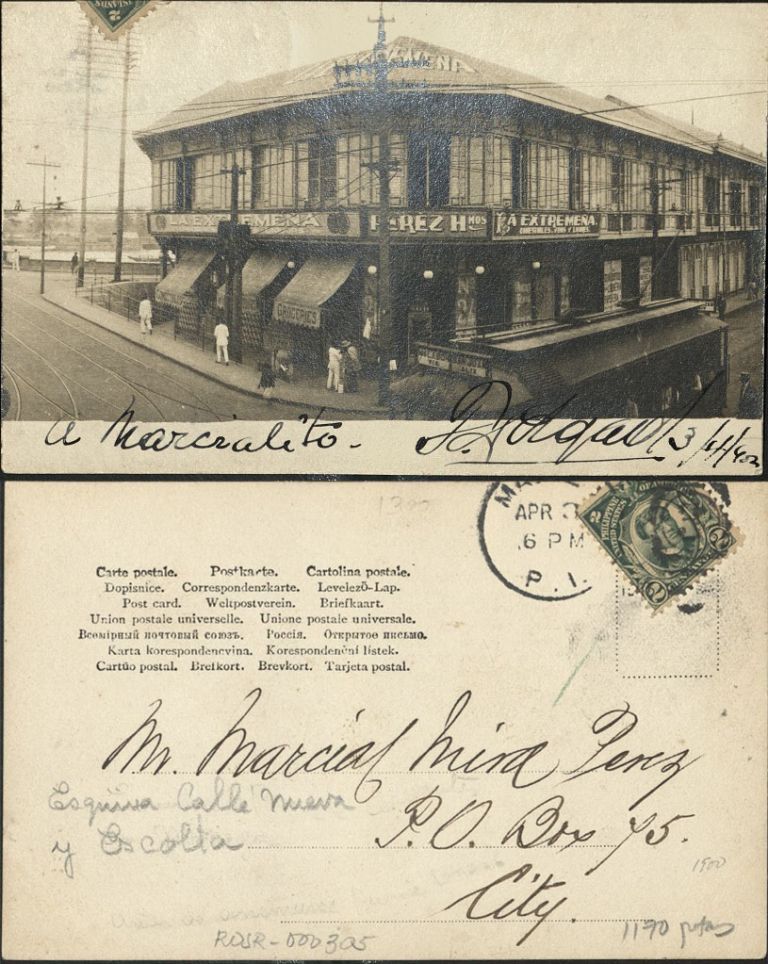 LA EXTREMEÑA
PEREZ Hnos
LA EXTREMEÑA
COMESTIBLES, VINOS Y LICORES
GROCERIES
A Marcialito.
1300
MA
APR 3
6 PM
P. I.
2
PHILIPPINE
UNITED STATES OF AMERICA
2
Carte postale. Postkarte. Cartolina postale.
Dopisnice. Correspondenzkarte. Levelező-Lap.
Post card. Weltpostverein. Briefkaart.
Union postale universelle. Unione postale universale.
Всемірный почтовый союзъ. Россія. Открытое письмо.
Karta korespondencyjna. Korespondenční lístek.
Cartão postal. Brefkort. Brevkort. Tarjeta postal.
Mr. Marcial Mira Perez
Esquina Calle Nueva
y Escolta
P.O. Box 75.
1900
City.
RDSR-000305
1170 ptas